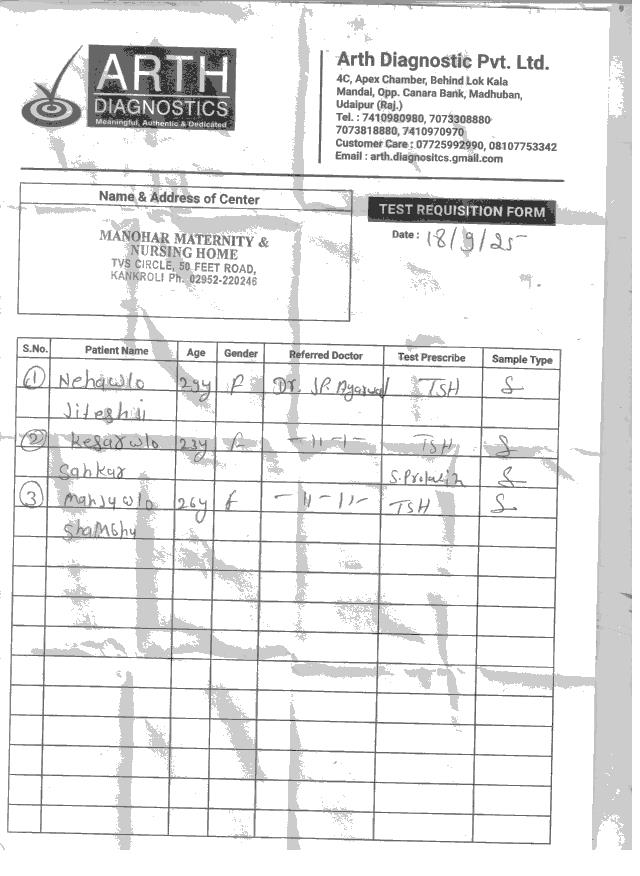 ARTH
DIAGNOSTICS
Meaningful, Authentic & Dedicated
Arth Diagnostic Pvt. Ltd.
4C, Apex Chamber, Behind Lok Kala
Mandal, Opp. Canara Bank, Madhuban,
Udaipur (Raj.)
Tel. : 7410980980, 7073308880
7073818880, 7410970970
Customer Care : 07725992990, 08107753342
Email : arth.diagnositcs.gmail.com
Name & Address of Center
MANOHAR MATERNITY &
NURSING HOME
TVS CIRCLE, 50 FEET ROAD,
KANKROLI Ph. 02952-220246
TEST REQUISITION FORM
Date : 18/9/25
S.No. Patient Name Age Gender Referred Doctor Test Prescribe Sample Type
1 Neha w/o 29y F Dr. JP. Agarwal TSH S
2 Kesar w/o 23y F -11-1- TSH S
Sankar S. Prolactin S
3 Manju w/o 26y F -11-11- TSH S
Shambhu